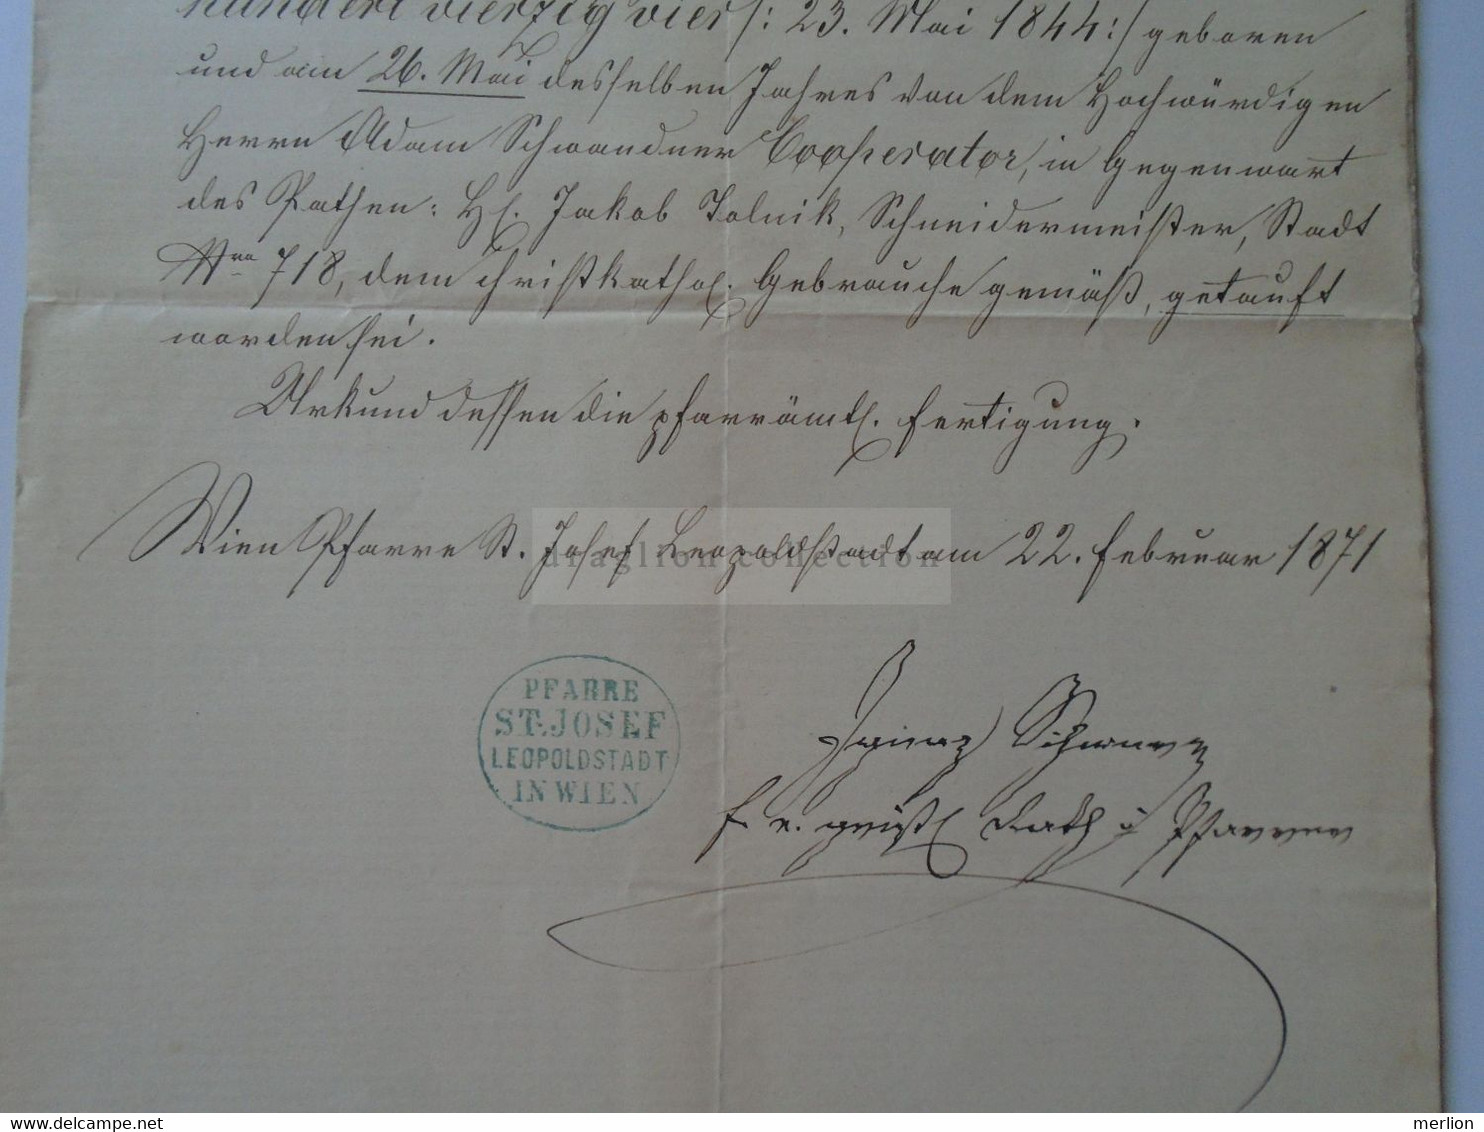 hundert vierzig vier /: 23. Mai 1844 :/ geboren
und am 26. Mai desselben Jahres von dem Hochwürdigen
Herrn Adam Schwandner Cooperator, in Gegenwart
des Pathen: H. Jakob Tolnik, Schneidermeister, Stadt
Nro 718, dem christkathol. Gebrauche gemäß, getauft
worden sei.
Urkund dessen die pfarrämtl. Fertigung.
Wien Pfarre St. Josef Leopoldstadt am 22. Februar 1871
draglion collection
PFARRE
ST. JOSEF
LEOPOLDSTADT
IN WIEN
f. e. geistl Rath u Pfarrer
merlion